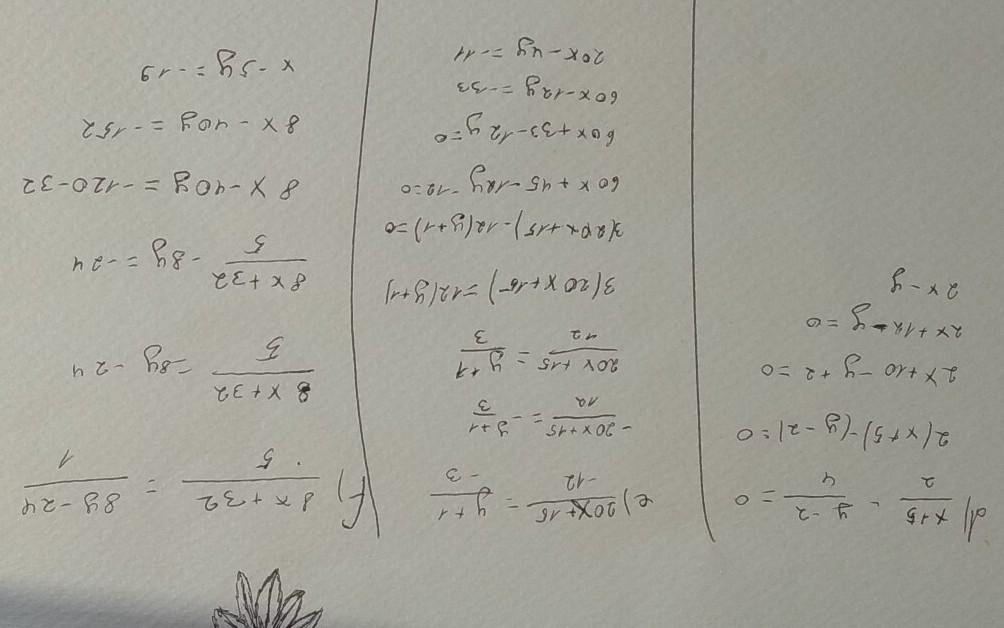 d) x+5/2 - y-2/4 = 0
2(x+5)-(y-2)=0
2x+10-y+2=0
2x+12-y=0
2x-y
e) 20x+15/-12 = y+1/-3
-20x+15/12 = -y+1/3
20x+15/12 = y+1/3
3(20x+15)=12(y+1)
3(20x+15)-12(y+1)=0
60x+45-12y-12=0
60x+33-12y=0
60x-12y=-33
20x-4y=-11
f) 8x+32/5 = 8y-24/1
8x+32/5 = 8y-24
8x+32/5 -8y=-24
8x-40y=-120-32
8x-40y=-152
x-5y=-19